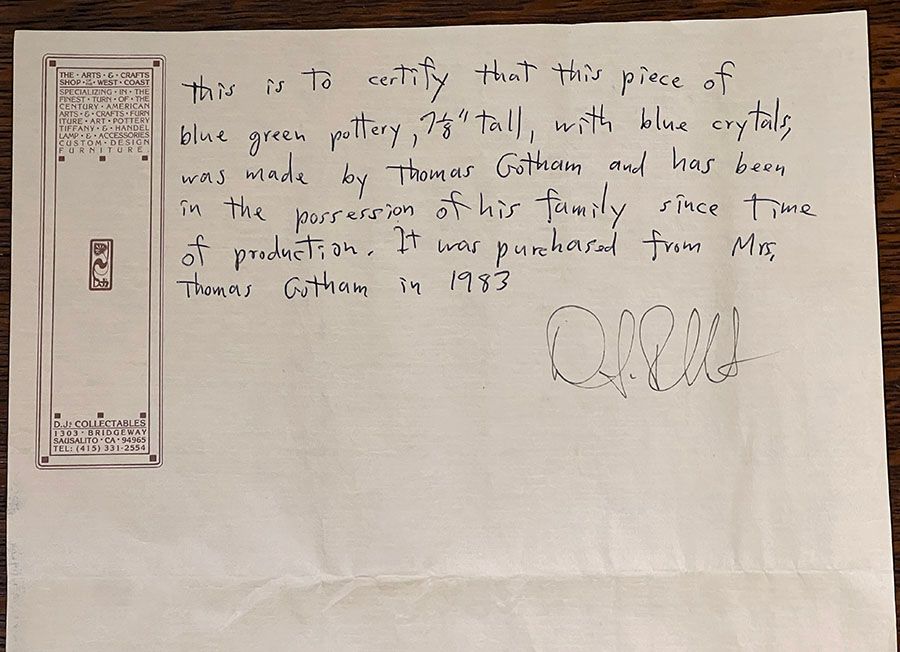 THE · ARTS · & · CRAFTS
SHOP · OF THE · WEST · COAST
SPECIALIZING · IN · THE
FINEST · TURN · OF · THE
CENTURY · AMERICAN
ARTS · & · CRAFTS · FURN
ITURE · ART · POTTERY
TIFFANY · & · HANDEL
LAMP · & · ACCESSORIES
CUSTOM · DESIGN
FURNITURE.
This is to certify that this piece of
blue green pottery, 7⅛" tall, with blue crytals,
was made by Thomas Gotham and has been
in the possession of his family since time
of production. It was purchased from Mrs.
Thomas Gotham in 1983
D.J's COLLECTABLES
1303 · BRIDGEWAY
SAUSALITO · CA · 94965
TEL: (415) 331-2554